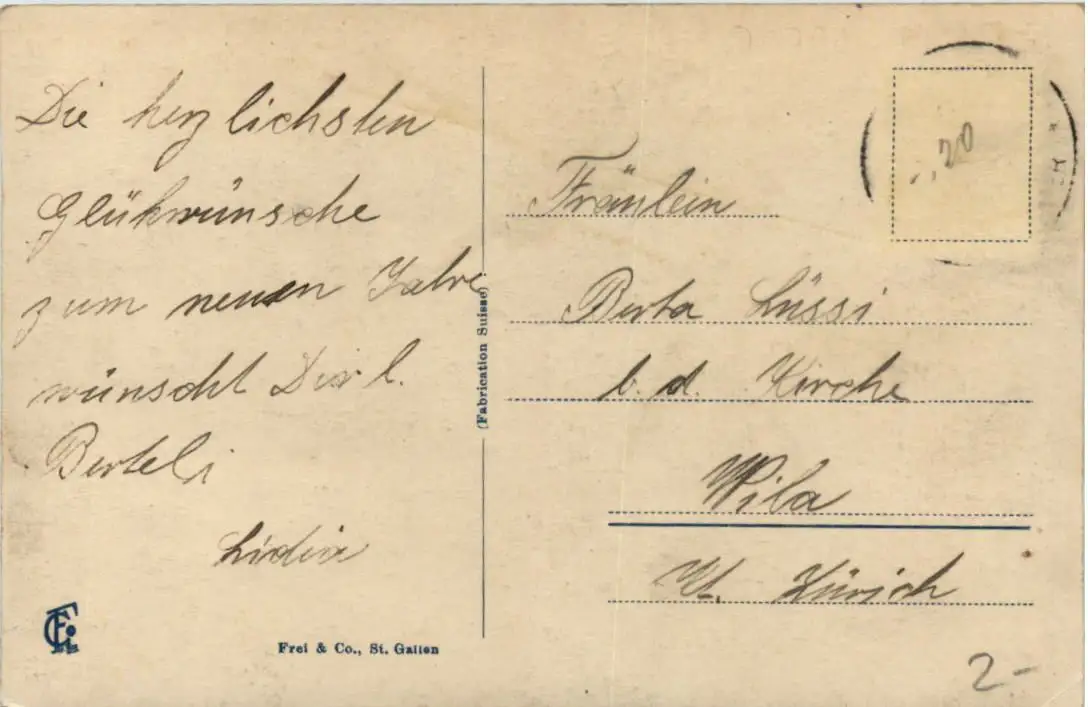 Die herzlichsten
Glükwünsche
zum neuen Jahre
wünscht Dir l.
Berteli
Lidia
Fräulein
Berta Lüssi
b. d. Kirche
Wila
Kt. Zürich
(Fabrication Suisse)
Frei & Co., St. Gallen
20
2-